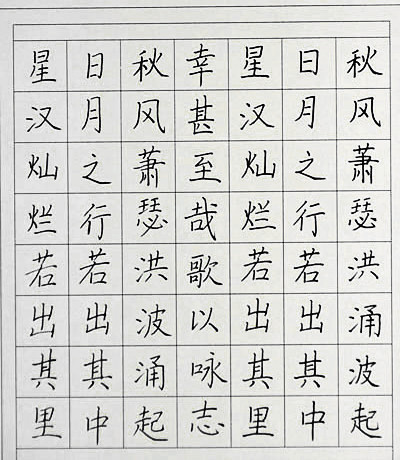 秋风萧瑟洪涌波起
日月之行若出其中
星汉灿烂若出其里
幸甚至哉歌以咏志
秋风萧瑟洪波涌起
日月之行若出其中
星汉灿烂若出其里